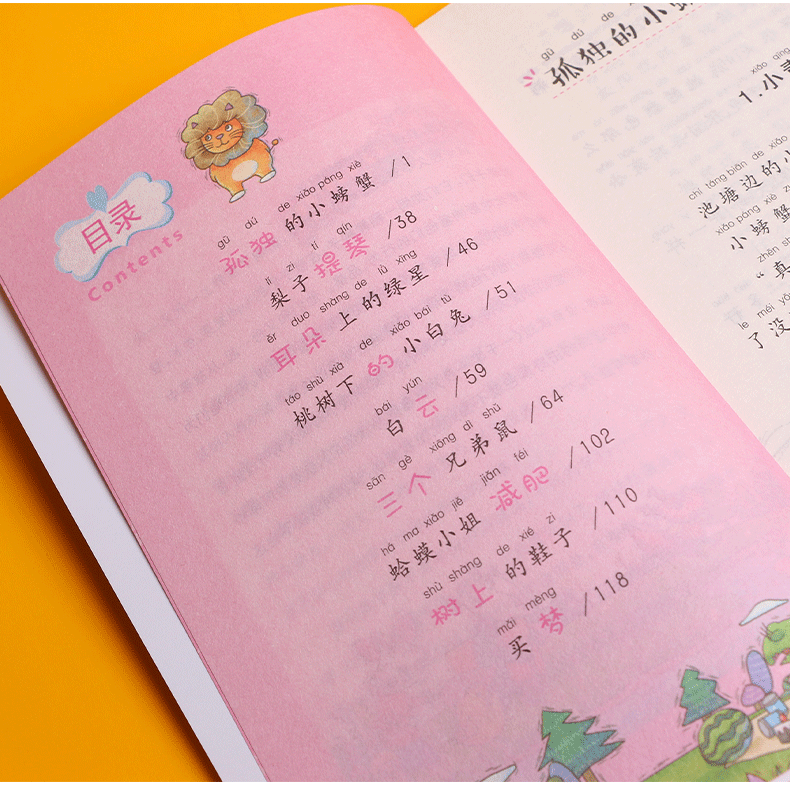 目录
Contents
gū dú de xiǎo páng xiè
孤独的小螃蟹 /1
lí zi tí qín
梨子提琴 /38
ěr duo shàng de lǜ xīng
耳朵上的绿星 /46
táo shù xià de xiǎo bái tù
桃树下的小白兔 /51
bái yún
白云 /59
sān gè xiōng dì shǔ
三个兄弟鼠 /64
há ma xiǎo jiě jiǎn féi
蛤蟆小姐减肥 /102
shù shàng de xié zi
树上的鞋子 /110
mǎi mèng
买梦 /118
gū dú de xiǎo
孤独的小
xiǎo qīng
1.小
chí táng biān de xiǎo
池塘边的小
xiǎo páng xiè
小螃蟹
zhēn
“真
le méi
了没